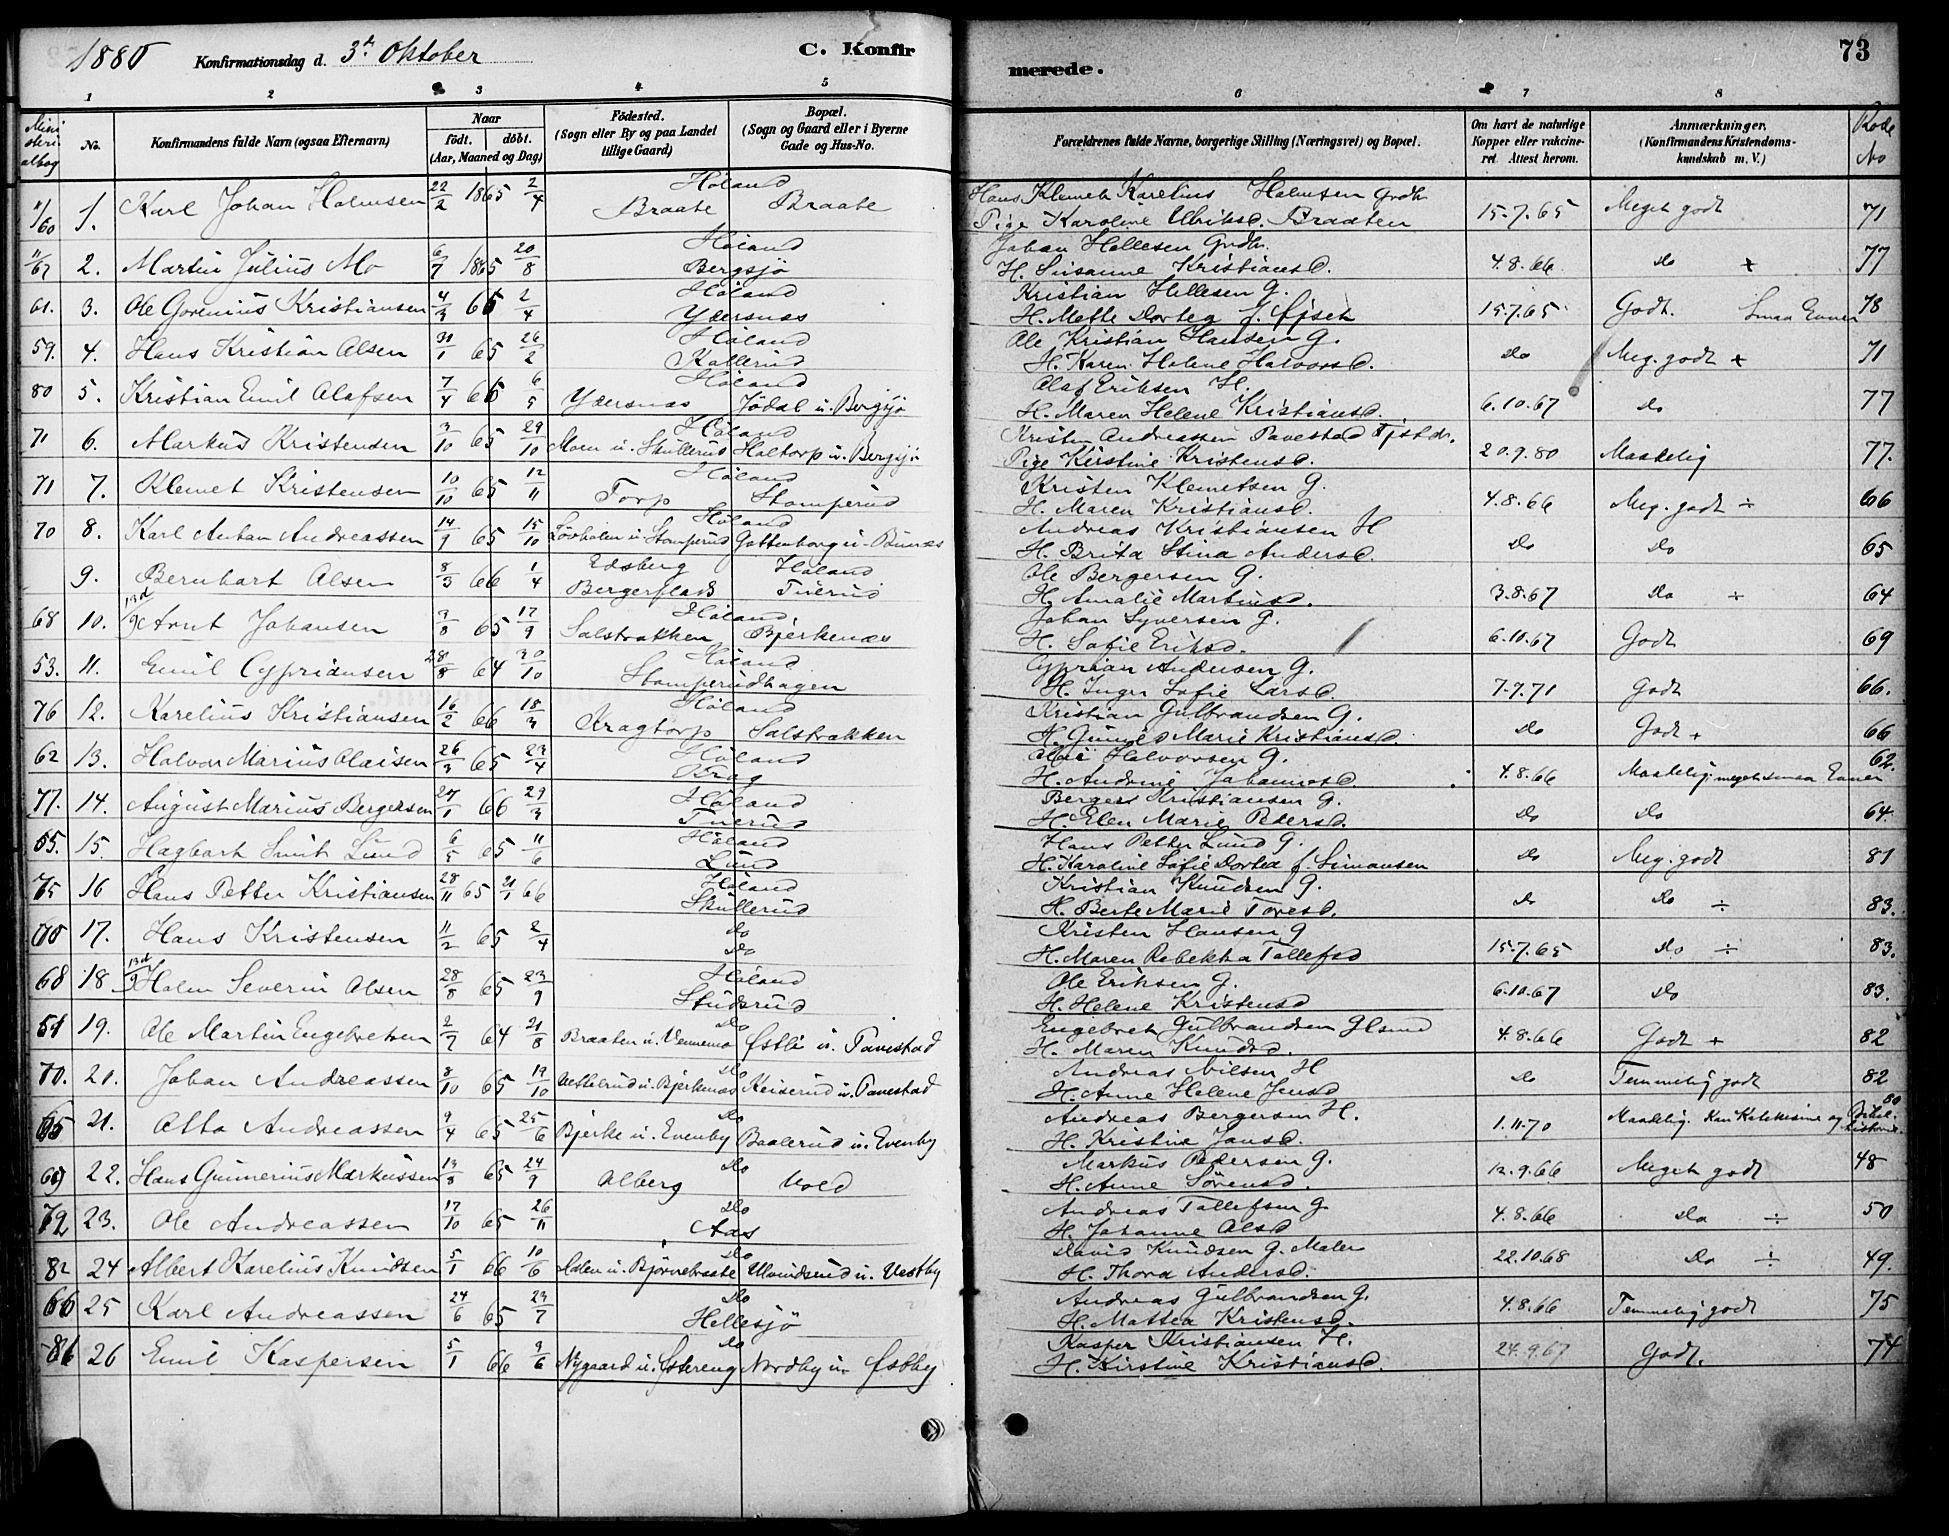 1880 Konfirmationsdag d. 3de Oktober C. Konfirmerede. 73
1 2 3 4 5 6 7 8
Ministerialbog No. Konfirmandens fulde Navn (ogsaa Efternavn) Naar født. døbt. (Aar, Maaned og Dag) Fødested. (Sogn eller By og paa Landet tillige Gaard) Bopæl. (Sogn og Gaard eller i Byerne Gade og Hus-No. Forældrenes fulde Navne, borgerlige Stilling (Næringsvei) og Bopæl. Om havt de naturlige Kopper eller vaccineret. Attest herom. Anmærkninger. (Konfirmandens Kristendomskundskab m. V.) Rode No
Høland Hans Klemet Karelius Holmsen Grdbr
11/60 1. Karl Johan Holmsen 22/2 1865 2/4 Braate Braate Pige Karoline Ulriksd. Braaten 15.7.65 Meget godt 71
Høland Johan Hellesen Grdbr.
11/67 2. Martin Julius Mo 6/7 1865 20/8 Bergsjø H. Susanne Kristiansd. 4.8.66 Do + 77
Høland Kristian Hellesen G.
61. 3. Ole Gorenius Kristiansen 4/3 65 2/4 Ydersnes H. Mette Dortea f. 15.7.65 Godt. Smaa Evner 78
Høland Ole Kristian Hansen G.
59. 4. Hans Kristian Olsen 31/1 65 26/2 Kollerud H. Karen Helene Halvorsd. Do Meg. godt + 71
Høland Olaf Eriksen H.
80 5. Kristian Emil Olafsen 7/4 66 6/5 Ydersnes Jødal u. Bergsjø H. Maren Helene Kristiansd. 6.10.67 Do 77
Høland Kristen Andreassen Tavestad
71 6. Markus Kristensen 3/10 65 29/10 Moen u. Skullerud Holtorp u. Bergsjø Pige Kirstine Kristensd. 20.9.80 Maadelig 77.
Høland Kristen Klemetsen G.
71 7. Klemet Kristensen 10/10 65 12/11 Torp Stomperud H. Maren Kristiansd. 4.8.66 Meg. godt ÷ 66
Høland Andreas Kristiansen H
70 8. Karl Anton Andreassen 14/9 65 15/10 Løvholen u. Stomperud Gottenborg u. H. Brita Stina Andersd. Do Do 65
Edsberg Høland Ole Bergersen G.
9. Bernhart Olsen 8/3 66 1/4 Bergerflads Tuerud H. Amalie Martinsd. 3.8.67 Do + 64
Høland Johan Syversen G.
68 10. Arnt Johansen 9/8 65 17/9 Solstrakken Bjerkenæs H. Sofie Eriksd. 6.10.67 Godt 69
Høland Cyprian Andersen G.
53. 11. Emil Cypriansen 28/8 64 30/10 Stomperudhagen H. Inger Sofie Larsd. 7.7.71 Godt 66.
Høland Kristian Gulbrandsen G.
76 12. Karelius Kristiansen 16/2 66 18/3 Kragtorp Solstrakken H. Marie Kristiansd. Do Godt + 66
Høland Halvorsen G.
62 13. Halvor Marius 26/3 65 23/4 Krog H. Andrine Johannesd. 4.8.66 Maadelig meget smaa Evner 62.
Høland Berger Kristiansen G.
77. 14. August Marius Bergersen 27/1 66 29/3 Tuerud H. Elen Marie Pedersd. Do Do 64.
Høland Hans Petter Lund G.
55. 15. Hagbart Smit Lund 6/5 65 11/6 Lund H. Karoline Sofie Dortea f. Simonsen Do Meg. godt 81
Høland Kristian Knudsen G.
75 16 Hans Petter Kristiansen 28/11 65 21/1 66 Skullerud H. Berte Marie Toresd. Do Do ÷ 83.
Do Kristen Hansen G
17. Hans Kristensen 11/2 65 2/4 Do H. Maren Rebekka Tollefsd 15.7.65 Do ÷ 83.
Høland Ole Eriksen G.
68 18. Holm Severin Olsen 28/8 65 23/9 Studsrud H. Helene Kristensd 6.10.67 Do 83.
Do Engebret Gulbrandsen
51 19. Ole Martin Engebretsen 2/7 64 21/8 Braaten u. Vennemo Østli u. Tavestad H. Maren Knudsd. 4.8.66 Godt + 82
Do Andreas Nilsen H
70. 21. Johan Andreassen 8/10 65 19/10 Vettelrud u. Bjerkenæs Keiserud u. Tavestad H. Anne Helene Jensd Do Temmelig godt 82
Do Andreas Bergersen H. 80
65 21. Otto Andreassen 9/4 65 25/6 Bjerke u. Evenby Baalerud u. Evenby H. Kristine Jansd. 1.11.70 Maadelig. Kan Katekisme og Bibelhistorie.
Do Markus Pedersen G.
69 22. Hans Gunnerius Markussen 13/8 65 24/9 Olberg Vold H. Anne Sørensd. 12.9.66 Meget godt 48
Do Andreas Tollefsen G.
72 23. Ole Andreassen 17/10 65 26/11 Aas H. Johanne Olsd 4.8.66 Do ÷ 50
Do David Knudsen G. Maler
82 24 Albert Karelius Knudsen 5/1 66 10/6 Holen u. Bjørnebraate u. Vestby H. Thora Andersd. 22.10.68 Do ÷ 49.
Do Andreas Gulbrandsen G.
66 25 Karl Andreassen 24/6 65 23/7 Hellesjø H. Mattea Kristensd. 4.8.66 Temmelig godt 75
Do Kasper Kristiansen H.
86 26 Emil Kaspersen 5/1 66 3/6 Nygaard u. Østereng Nordby u. Østby H. Kirstine Kristiansd. 24.9.67 Godt. 74